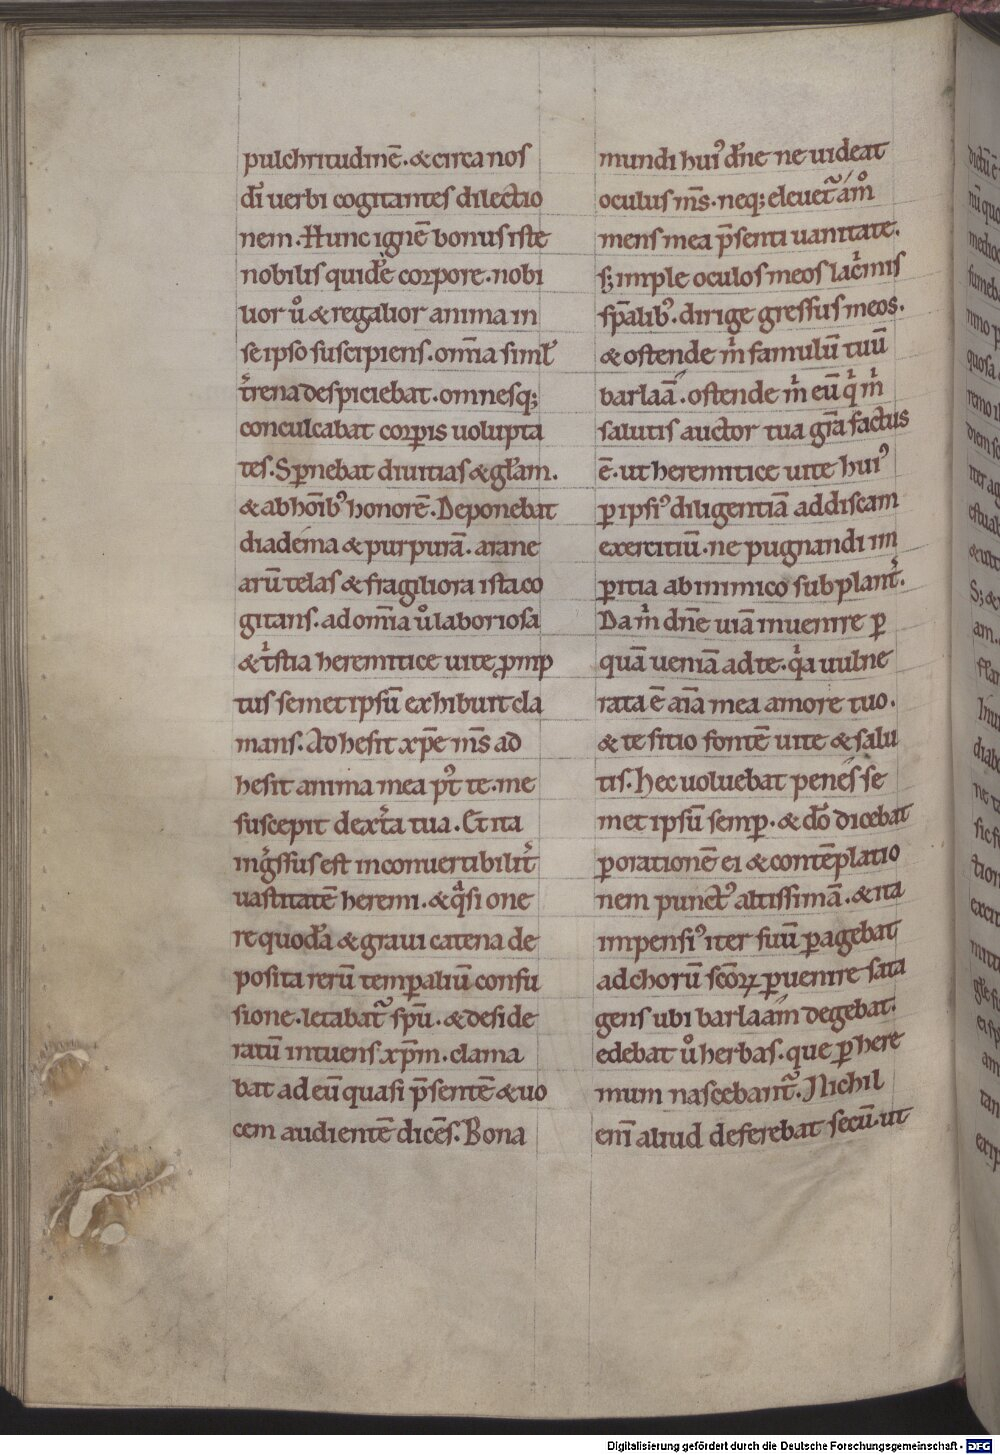 pulchritudinē. & circa nos
dī uerbi cogitantes dilectio
nem. Hunc ignē bonus iste
nobilis quidē corpore. nobi
lior ů & regalior anima in
se ipso suscipiens. om̄ia simł
t͛rena despiciebat. omnesq;
conculcabat corꝑis uolupta
tes. Sꝑnebat diuitias & gl̄am.
& ab hōib᾽ honorē. Deponebat
diadema & purpurā. arane
arū telas & fragiliora ista co
gitans. ad om̄ia ů laboriosa
& tͥstia heremitice uitę ꝓmp
tus semet ipsū exhibuit cla
mans. Adhesit xp̄e m̄s ad
hesit anima mea p᾽t te. me
suscepit dext͛a tua. Et ita
ing͛ssus est inconuertibilit͛
uastitatē heremi. & qͣsi one
re quodā & graui catena de
posita rerū temꝑaliū confu
sione. letabat᷑ sp̄u. & deside
ratū intuens xp̄m. clama
bat ad eū quasi p̄sentē & uo
cem audientē dicēs. Bona
mundi hui᾽ dn̄e ne uideat
oculus m̄s. neq; eleuet᷑ am̊
mens mea p̄senti uanitate.
s; imple oculos meos lac͛mis
sp̄alib᾽. dirige gressus meos.
& ostende mͥ famulū tuū
barlaā. ostende mͥ eū qͥ mͥ
salutis auctor tua gr̄a factus
ē. ut heremitice uite hui᾽
ꝑ ipsi᾽ diligentiā addiscam
exercitiū. ne pugnandi im
ꝑitia ab inimico subplant͛.
Da mͥ dn̄e uiā inuenire ꝑ
quā ueniā ad te. qͥa uulne
rata ē aīa mea amore tuo.
& te sitio fontē uite & salu
tis. Hec uoluebat penes se
met ipsū semꝑ. & dō dicebat
ꝑ orationē ei & contēplatio
nem punct᾽ altissimā. & ita
impensi᾽ iter suū ꝑagebat
ad chorū scōꝝ ꝑuenire sata
gens ubi barlaam degebat.
edebat ů herbas. que ꝑ here
mum nascebant᷑. Nichil
enī aliud deferebat secū. ut